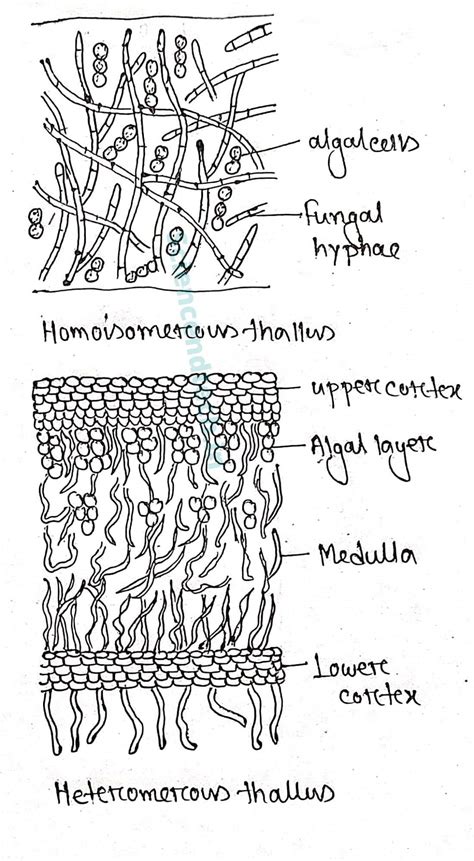 algal cells
fungal
hyphae
Homoisomerous thallus
upper cortex
Algal layer
Medulla
Lower
cortex
Heteromerous thallus